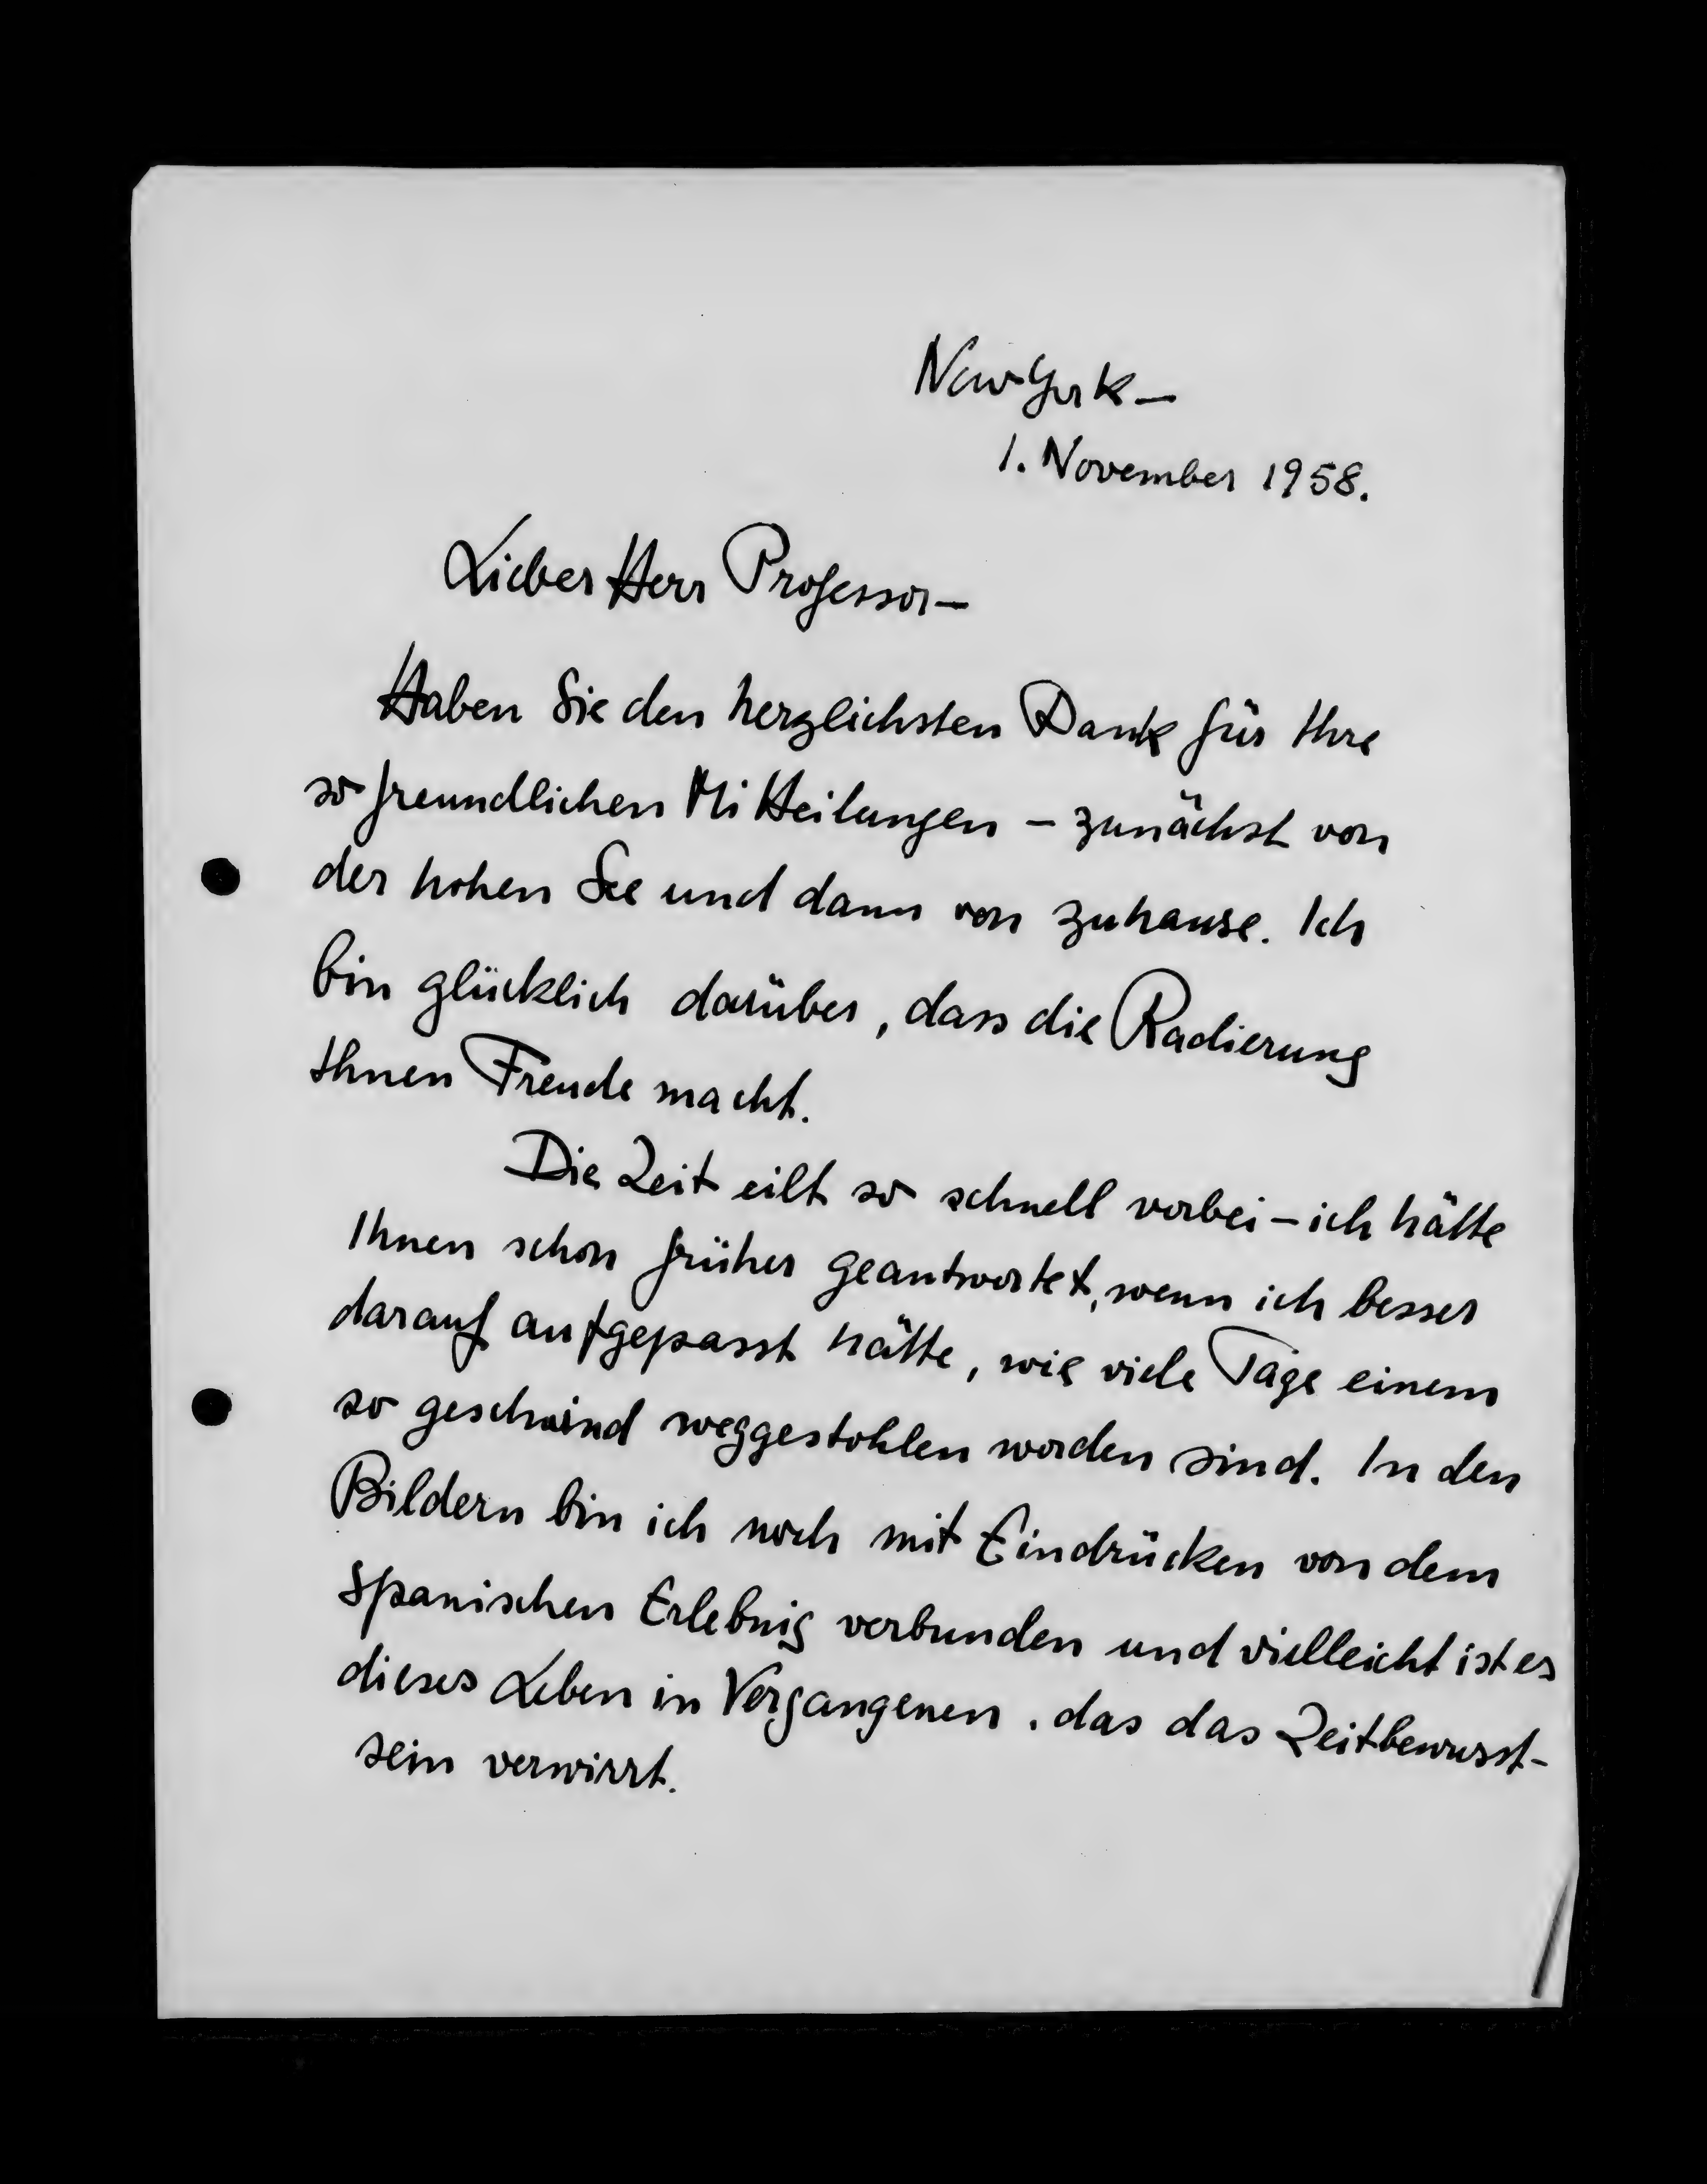 New York —
1. November 1958.
Lieber Herr Professor —
Haben Sie den herzlichsten Dank für Ihre
so freundlichen Mitteilungen – zunächst von
der hohen See und dann von zuhause. Ich
bin glücklich darüber, dass die Radierung
Ihnen Freude macht.
Die Zeit eilt so schnell vorbei – ich hätte
Ihnen schon früher geantwortet, wenn ich besser
darauf aufgepasst hätte, wie viele Tage einem
so geschwind weggestohlen worden sind. In den
Bildern bin ich noch mit Eindrücken von dem
spanischen Erlebnis verbunden und vielleicht ist es
dieses Leben in Vergangenen, das das Zeitbewusst-
sein verwirrt.